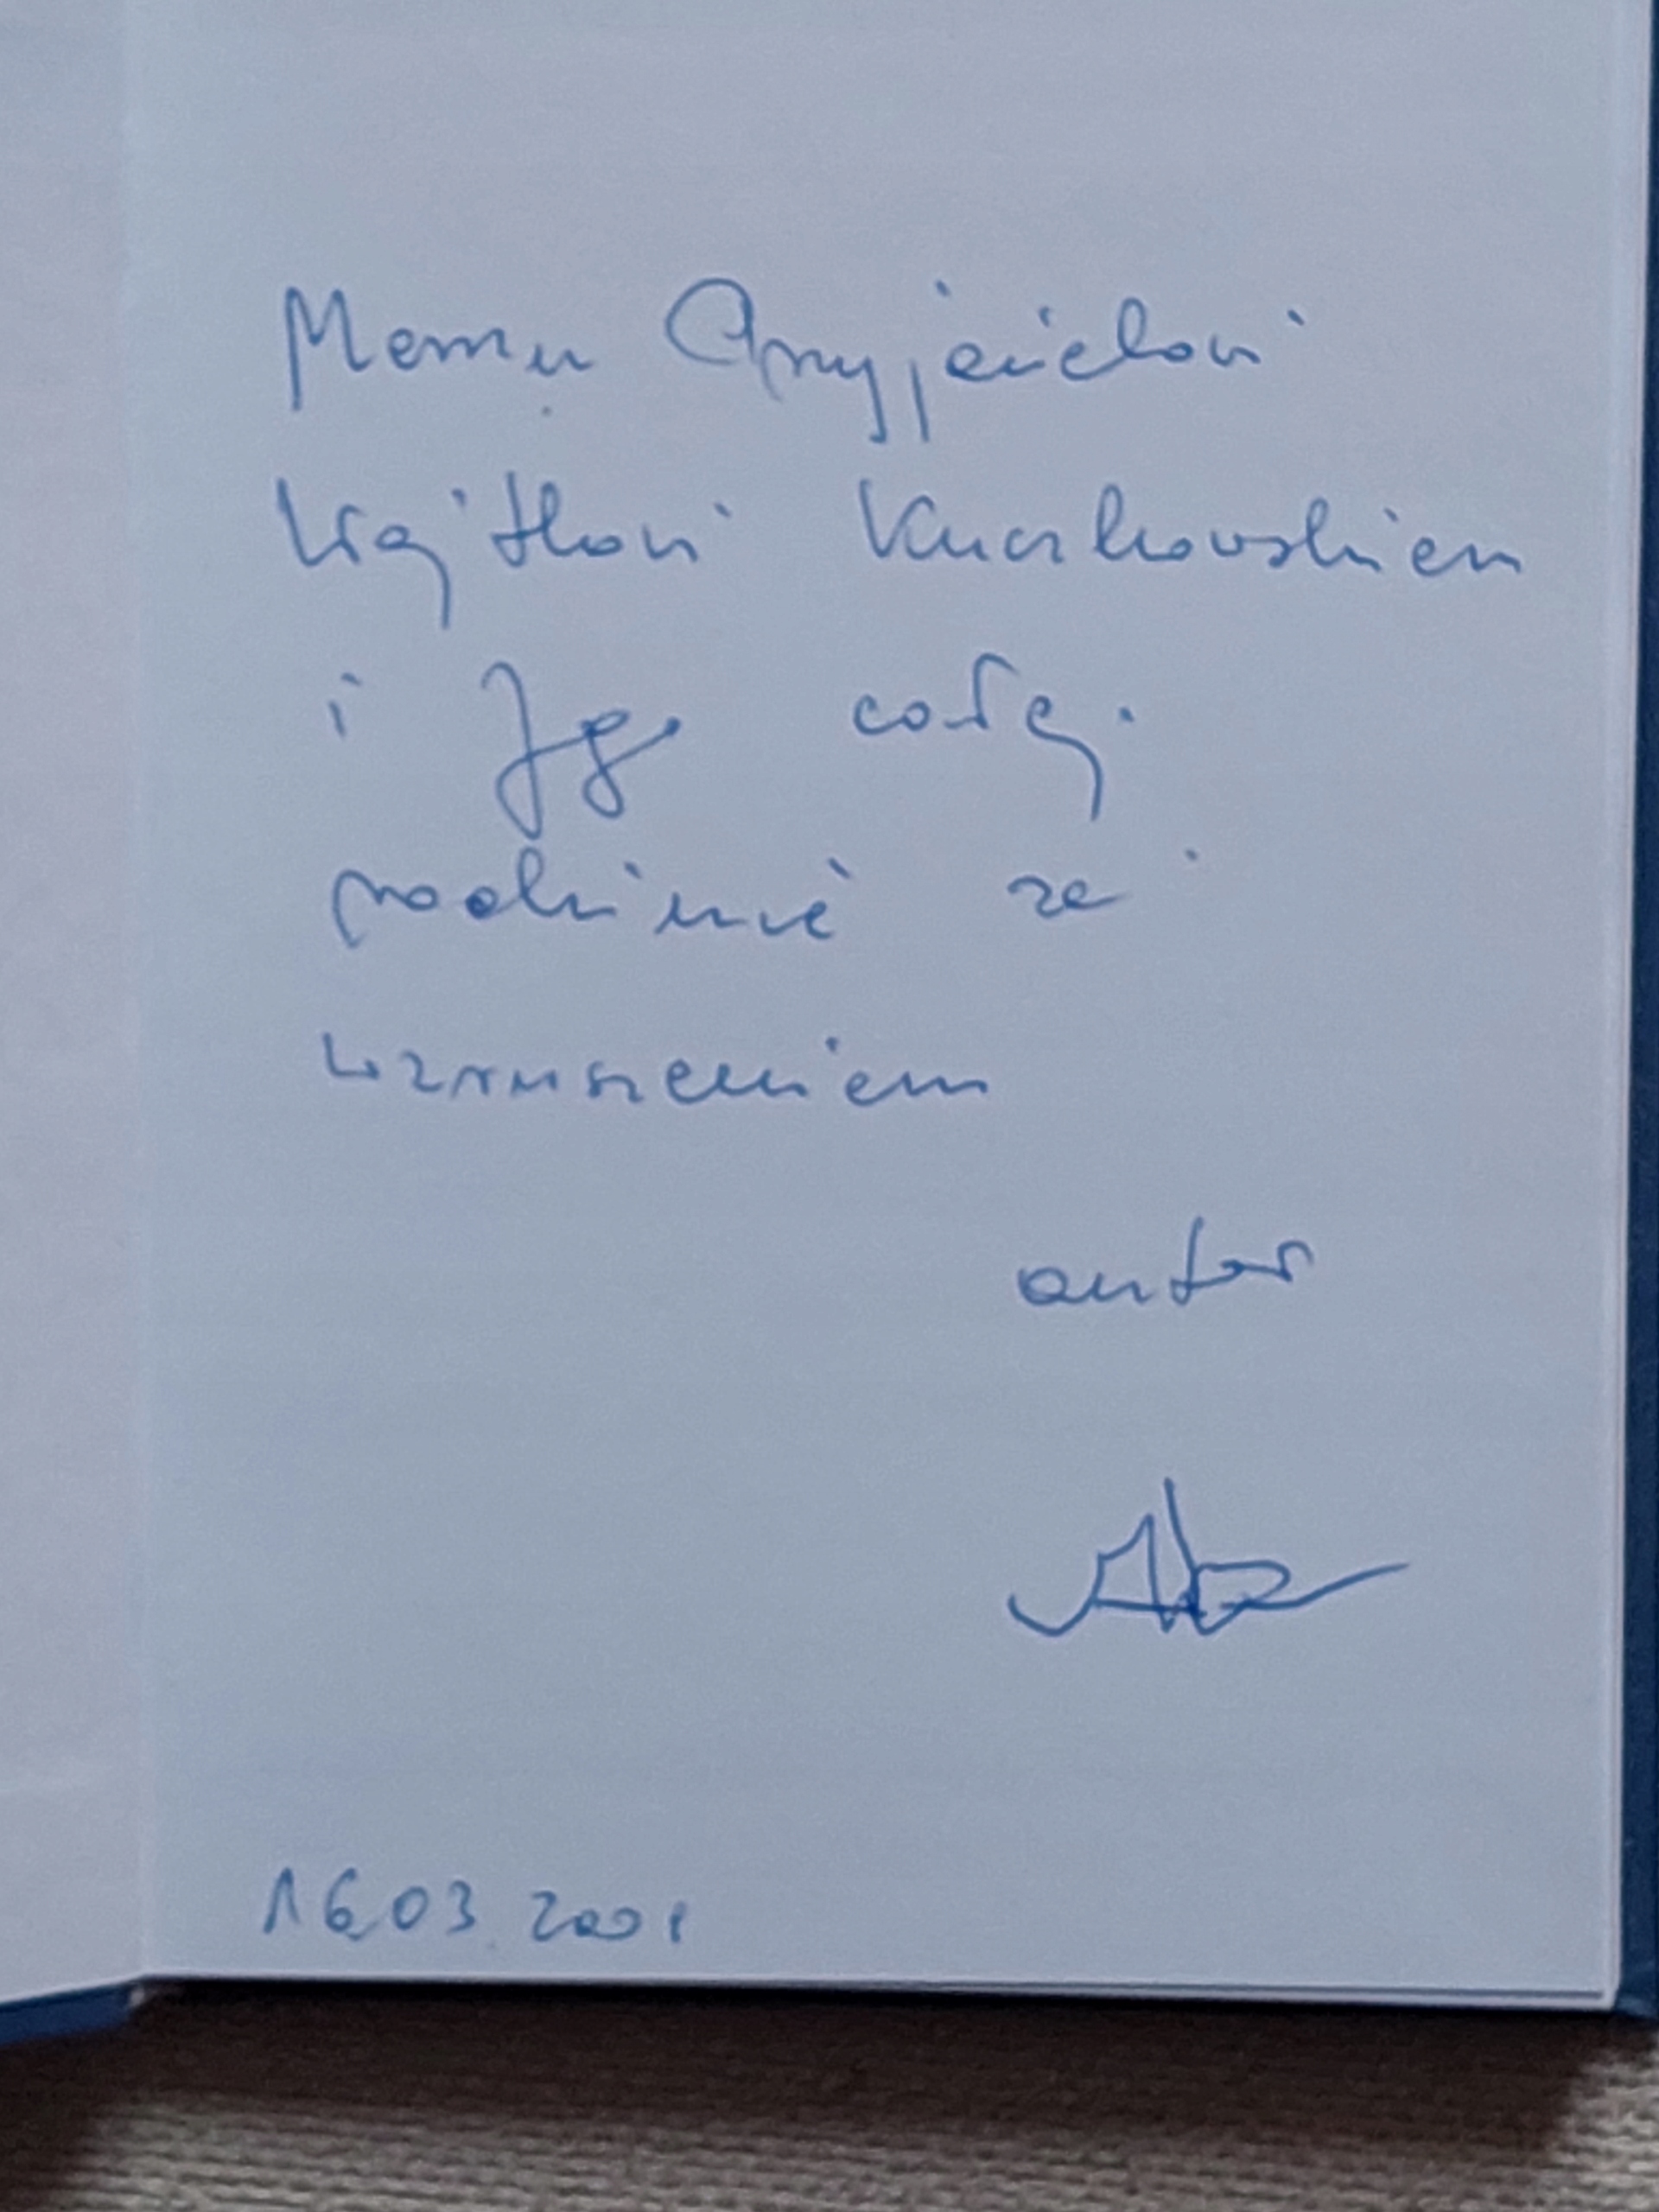 Memu Przyjacielowi
Wojtkowi Kuczkowskiem
i Jego całej
rodzinie ze
wzruszeniem
autor
16.03.2001